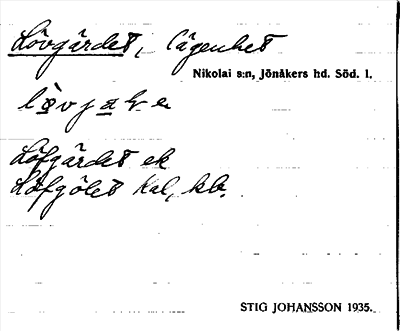 Lövgärdet, lägenhet
Nikolai s:n, Jönåkers hd. Söd. l.
Löfgärdet ek
Löfgölet kal, kb.
STIG JOHANSSON 1935.